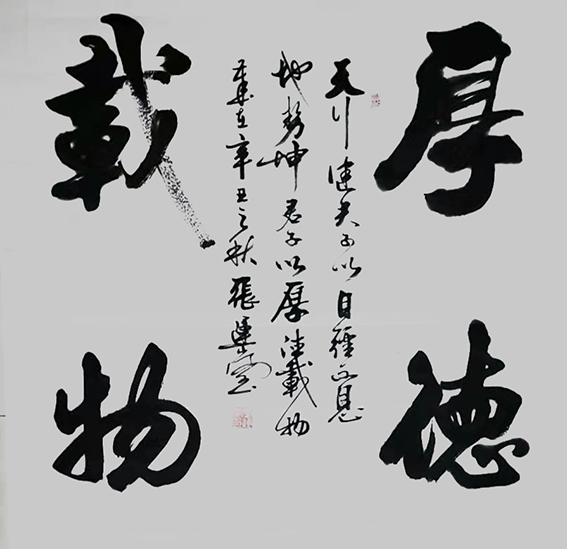 厚德
天行健君子以自强不息
地势坤君子以厚德載物
歲在辛丑之秋張
載物